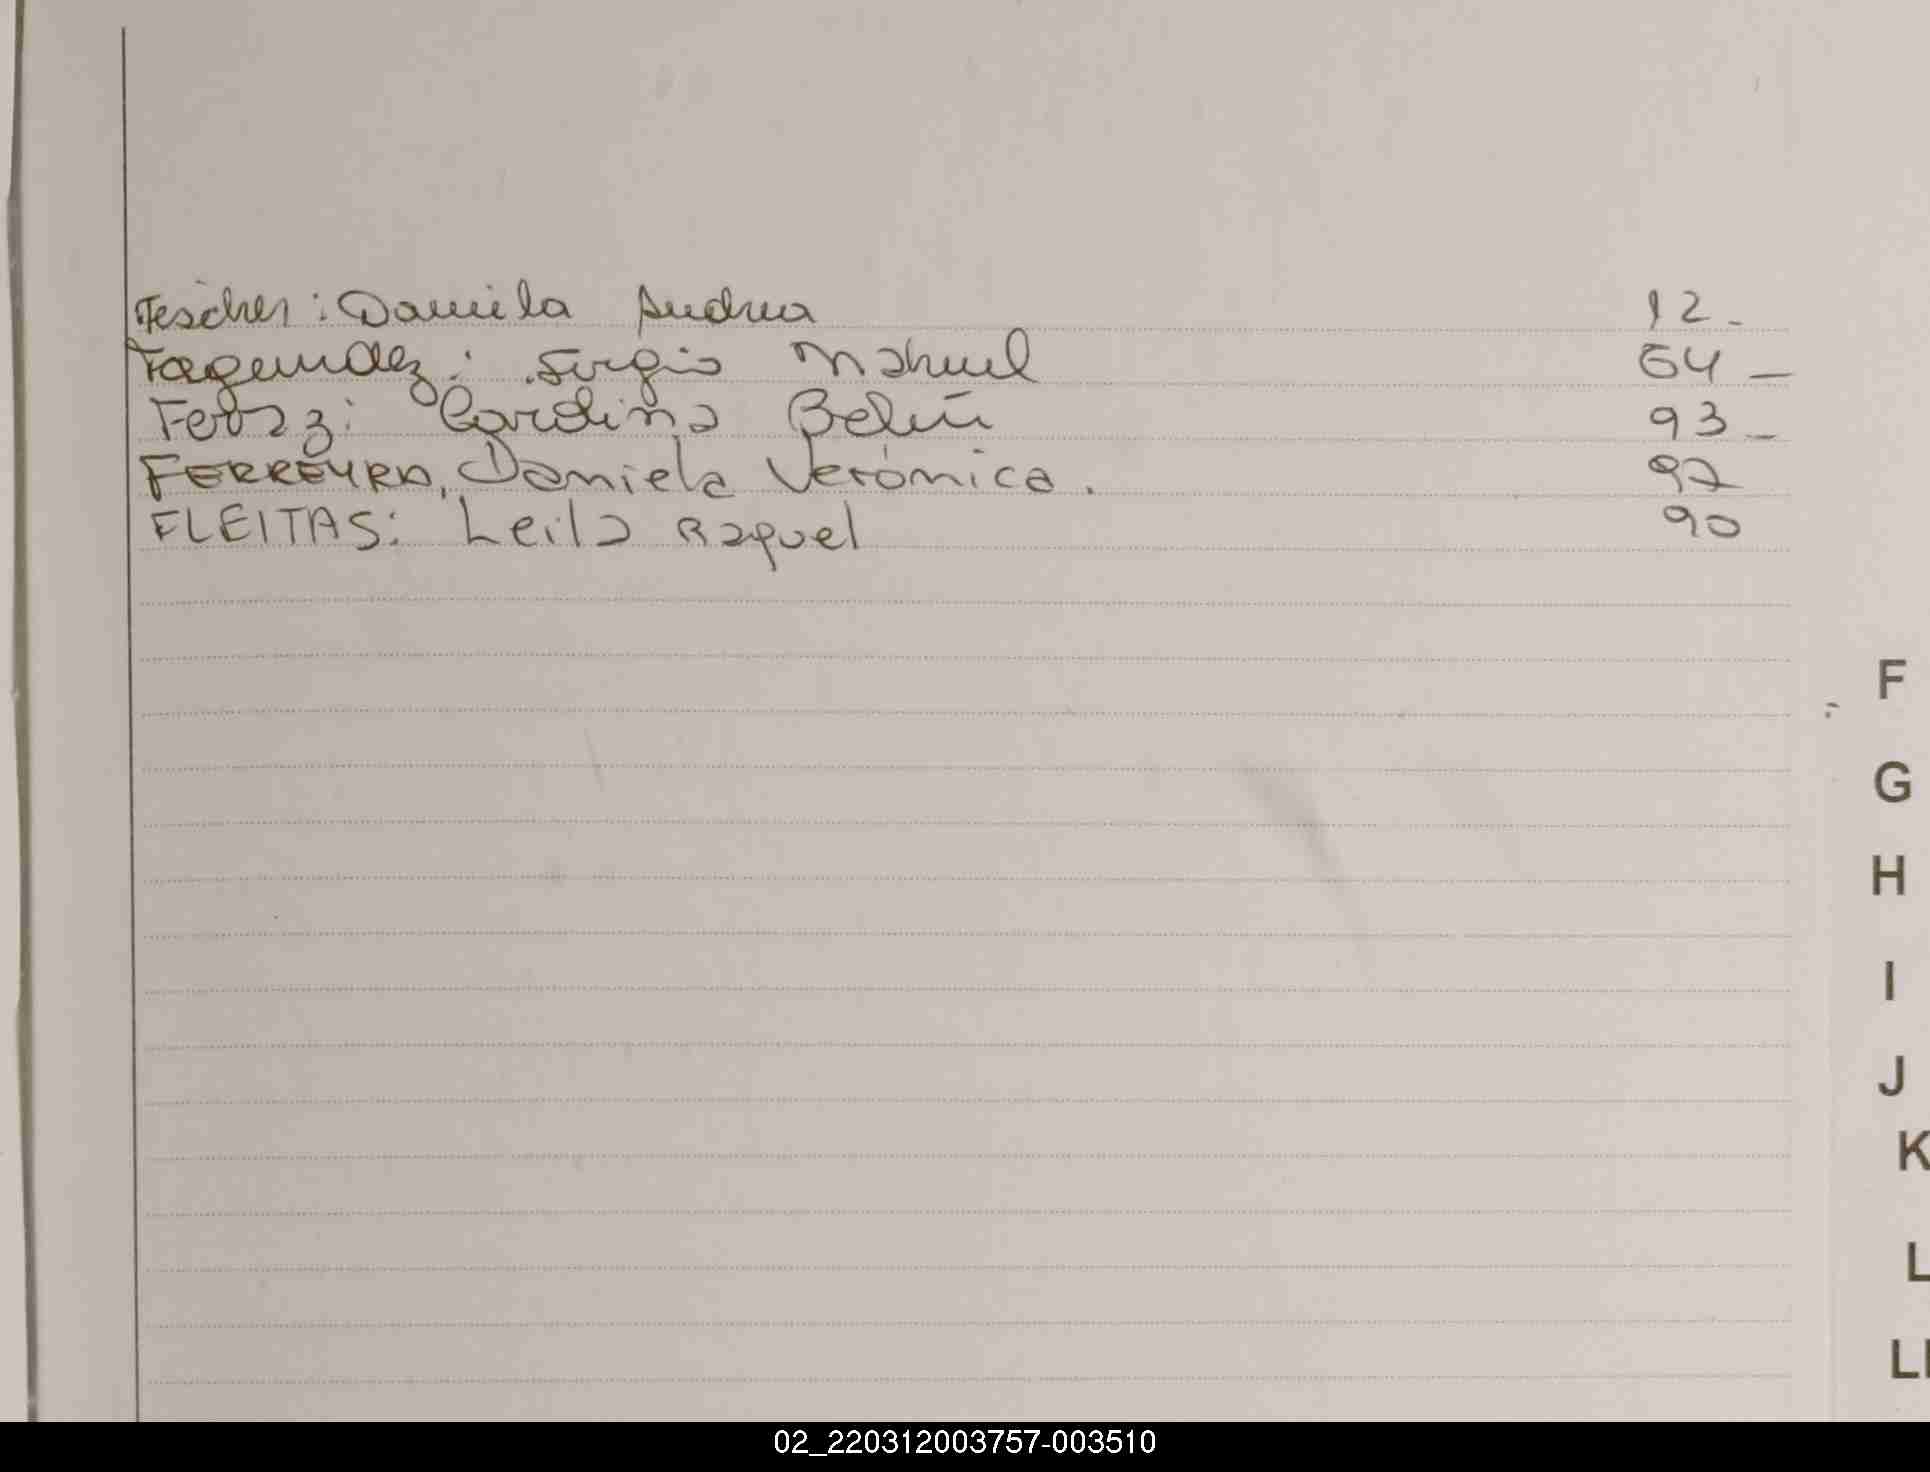 Fescher: Daniela Andrea 12.
Fagundez: Sergio Nahuel 64 -
Feraz: Carolina Belén 93 -
FERREYRA, Daniela Verónica. 97
FLEITAS: Leila Raquel 90
F
G
H
I
J
K
L
LL
02_220312003757-003510